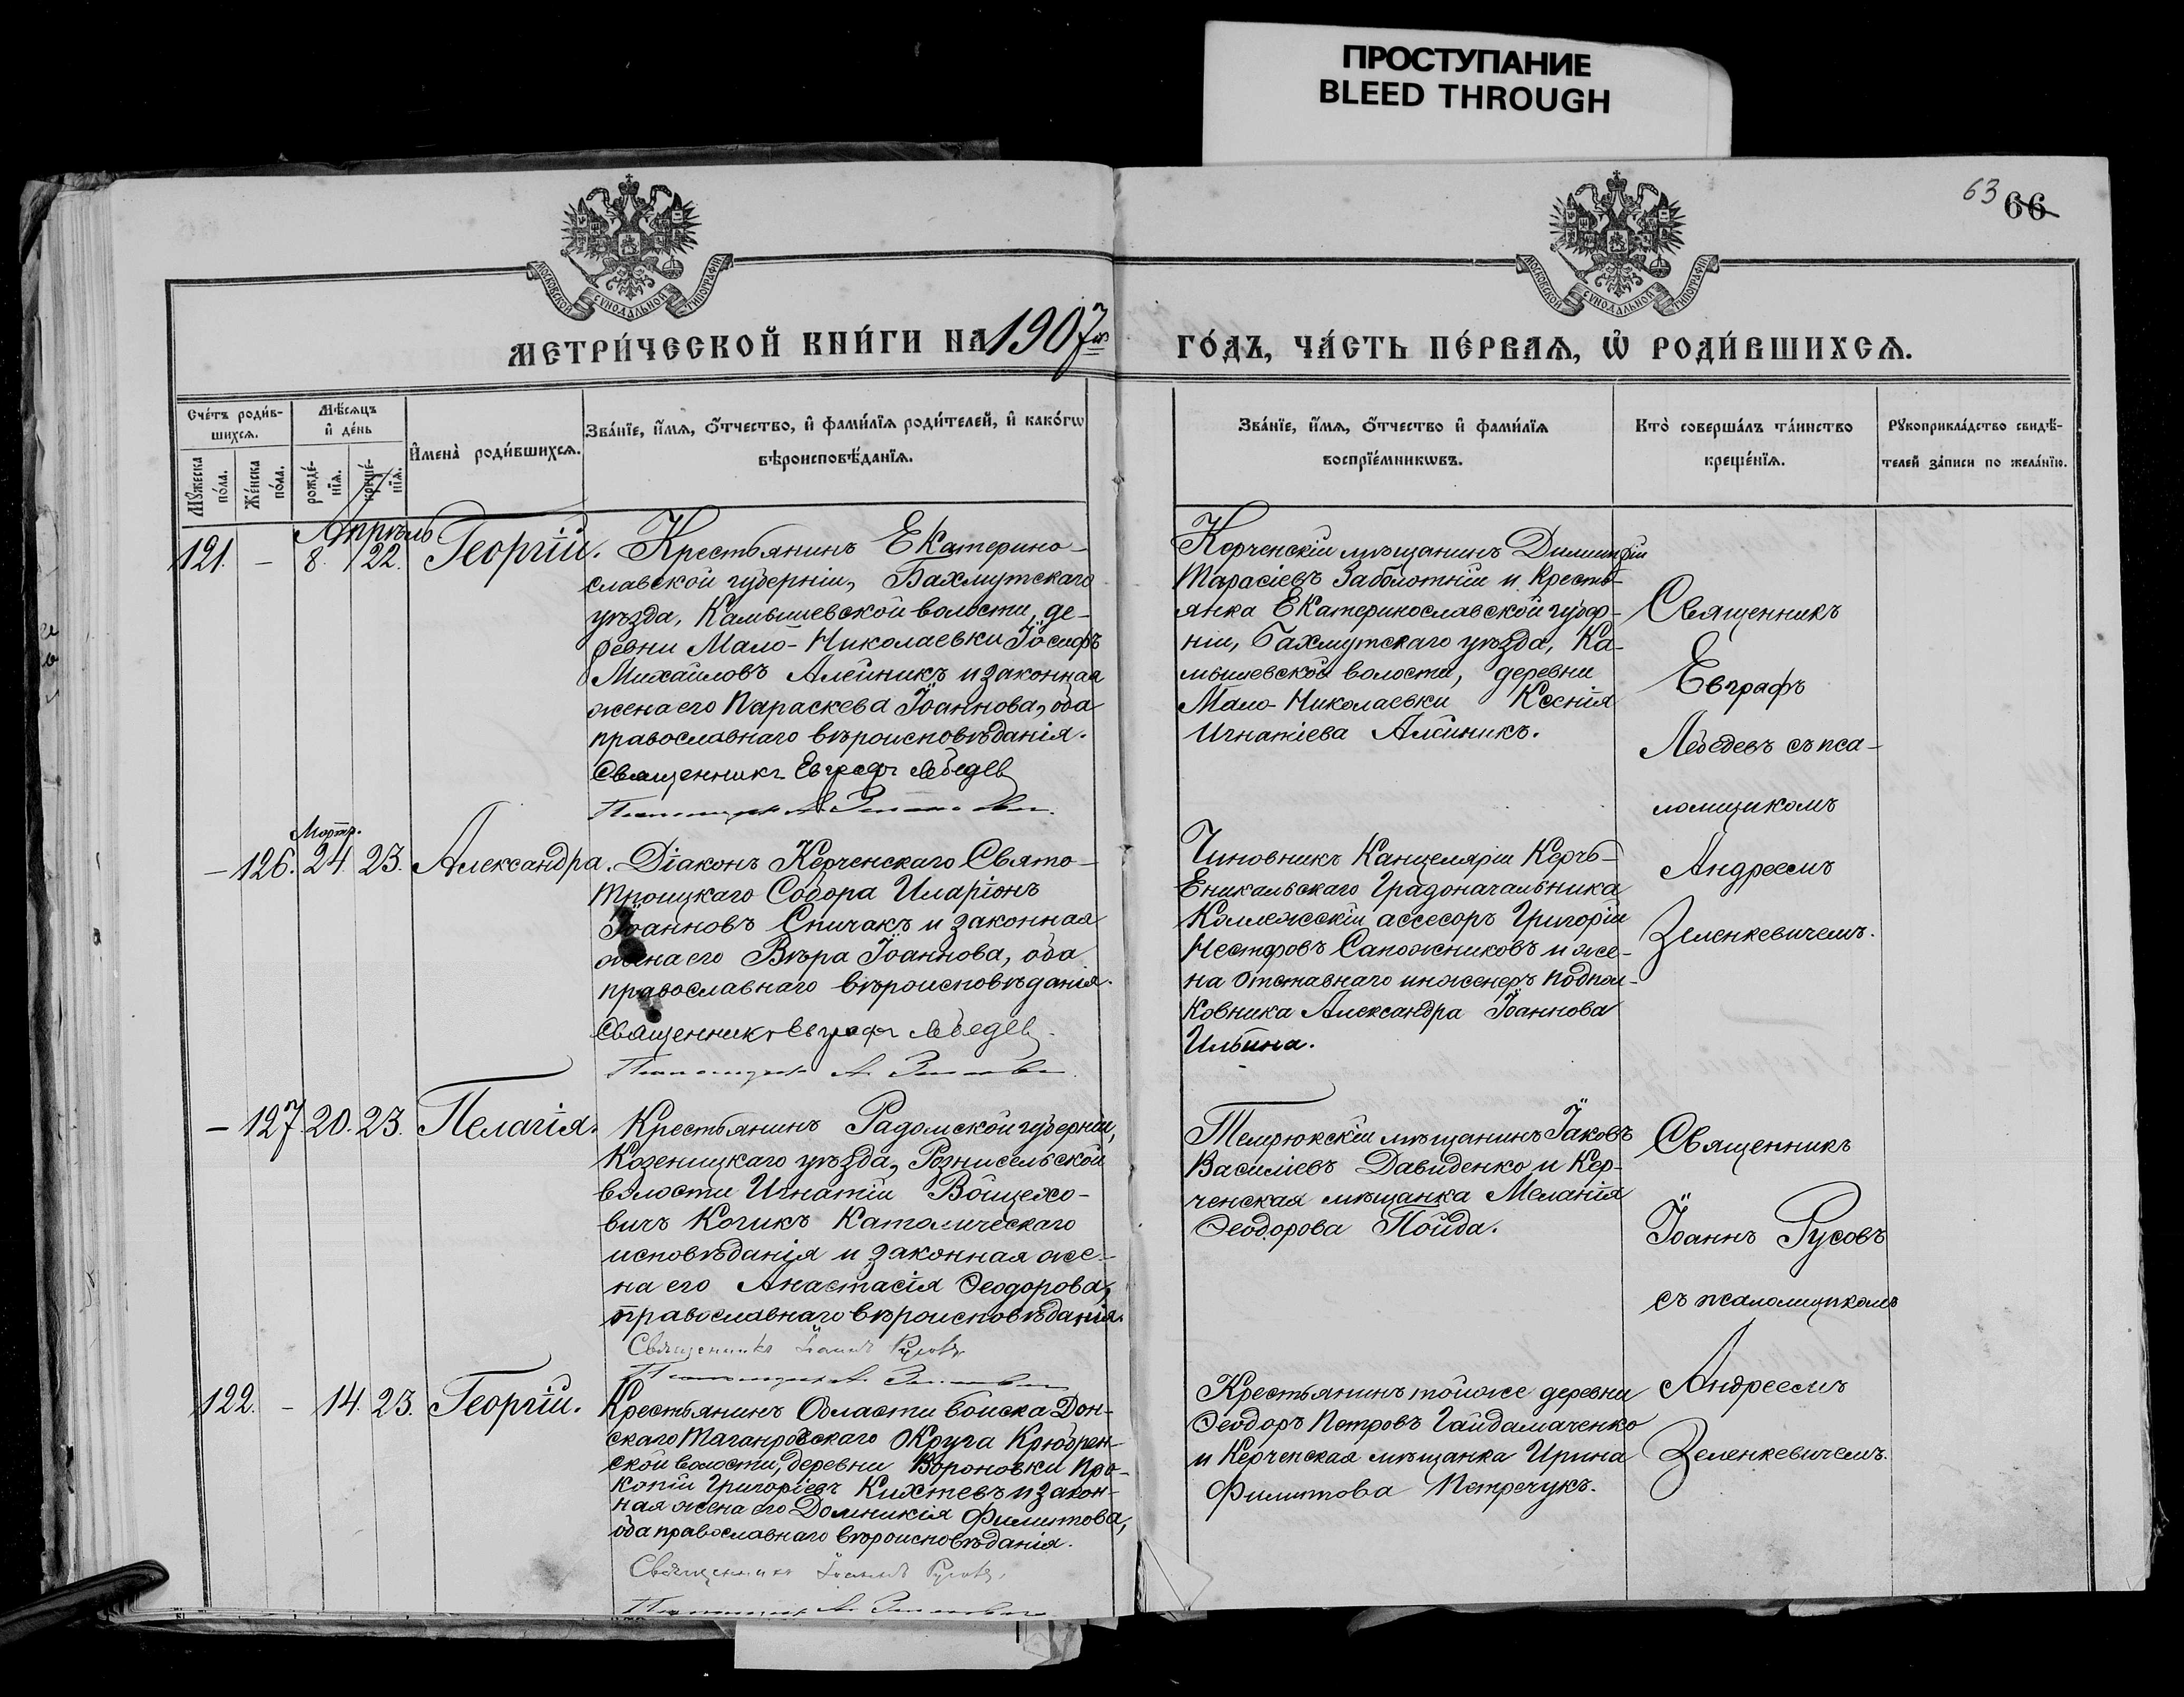 ПРОСТУПАНИЕ
BLEED THROUGH
63 66
МОСКОВСКОЙ СУНОДАЛЬНОЙ ТИПОГРАФІИ
МОСКОВСКОЙ СУНОДАЛЬНОЙ ТИПОГРАФІИ
МЕТРИ́ЧЕСКОЙ КНИ́ГИ НА 1907й
ГО́ДЪ, ЧА́СТЬ ПЕ́РВАѦ, Ѡ҆ РОДИ́ВШИХСѦ.
Сче́тъ роди́в-
шихсѧ.
Мꙋ́жеска
по́ла.
Же́нска
по́ла.
Мѣ́сѧцъ
и҆ де́нь
рожде́-
нїѧ.
креще́-
нїѧ.
И҆мена̀ роди́вшихсѧ.
Зва́нїе, и҆́мѧ, ѻ҆́тчество, и҆ фами́лїѧ роди́телей, и҆ како́гѡ
вѣроисповѣ́данїѧ.
Зва́нїе, и҆́мѧ, ѻ҆́тчество и҆ фами́лїѧ
воспрїе́мникѡвъ.
Кто̀ соверша́лъ та́инство
креще́нїѧ.
Рꙋкоприкла́дство свидѣ́-
телей за́писи по жела́нїю.
Апрѣль
121. – 8. 22. Георгій. Крестьянинъ Екатерино-
славской губерніи, Бахмутскаго
уѣзда, Камышевской волости, де-
ревни Мало-Николаевки Іосифъ
Михаиловъ Алейникъ и законная
жена его Параскева Іоаннова, оба
православнаго вѣроисповѣданія.
Священникъ Евграфъ Лебедев
Керченскій мѣщанинъ Димитрій
Тарасіевъ Заболотній и кресть-
янка Екатеринославской губер-
ніи, Бахмутскаго уѣзда, Ка-
мышевской волости, деревни
Мало-Николаевки Ксенія
Игнатіева Алейникъ.
Священникъ
Евграфъ
Лебедевъ съ пса-
ломщикомъ
Андреемъ
Зеленкевичемъ.
Мартъ.
– 126. 24. 23. Александра. Діаконъ Керченскаго Свято-
Троицкаго Собора Иларіонъ
Іоанновъ Спичакъ и законная
жена его Вѣра Іоаннова, оба
православнаго вѣроисповѣданія.
Священникъ Евграфъ Лебедев
Чиновникъ Канцеляріи Керчь-
Еникальскаго Градоначальника
Коллежскій ассесоръ Григорій
Несторовъ Сапожниковъ и же-
на отставнаго инженеръ подпол-
ковника Александра Іоаннова
Ильина.
– 127. 20. 23. Пелагія. Крестьянинъ Радомской губерніи,
Козеницкаго уѣзда, Рознисельской
волости Игнатій Войцехо-
вичъ Когикъ Католическаго
исповѣданія и законная же-
на его Анастасія Ѳеодорова,
православнаго вѣроисповѣданія.
Священникъ Іоаннъ Русовъ
Темрюкскій мѣщанинъ Іаковъ
Василіевъ Давиденко и Кер-
ченская мѣщанка Меланія
Ѳеодорова Пойда.
Священникъ
Іоаннъ Русовъ
съ псаломщикомъ
Андреемъ
Зеленкевичемъ.
122. – 14. 23. Георгій. Крестьянинъ Области войска Дон-
скаго Таганрогскаго Округа
ской волости, деревни Вороновки Про-
копій Григоріевъ Кихтевъ и закон-
ная жена его Домникія Филиппова,
оба православнаго вѣроисповѣданія.
Священникъ Іоаннъ Русовъ
Крестьянинъ тойже деревни
Ѳеодоръ Петровъ Гайдамаченко
и Керченская мѣщанка Ирина
Филиппова Петречукъ.